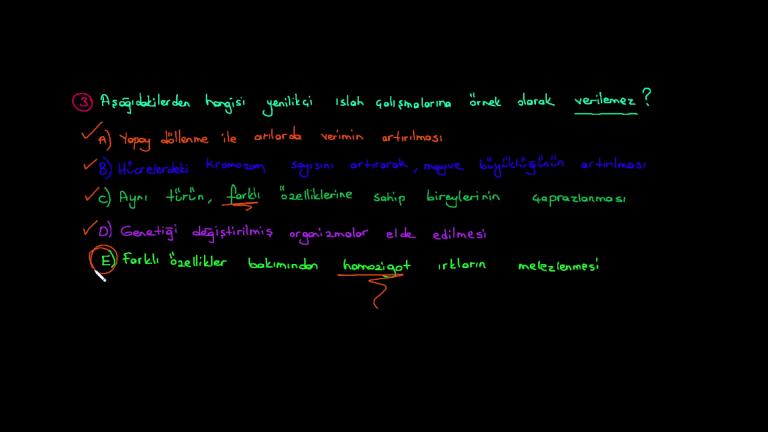 3 Aşağıdakilerden hangisi yenilikçi ıslah çalışmalarına örnek olarak verilemez?
A) Yapay döllenme ile arılarda verimin artırılması
B) Hücrelerdeki kromozom sayısını artırarak, meyve büyüklüğünün artırılması
C) Aynı türün, farklı özelliklerine sahip bireylerinin çaprazlanması
D) Genetiği değiştirilmiş organizmalar elde edilmesi
E) Farklı özellikler bakımından homozigot ırkların melezlenmesi